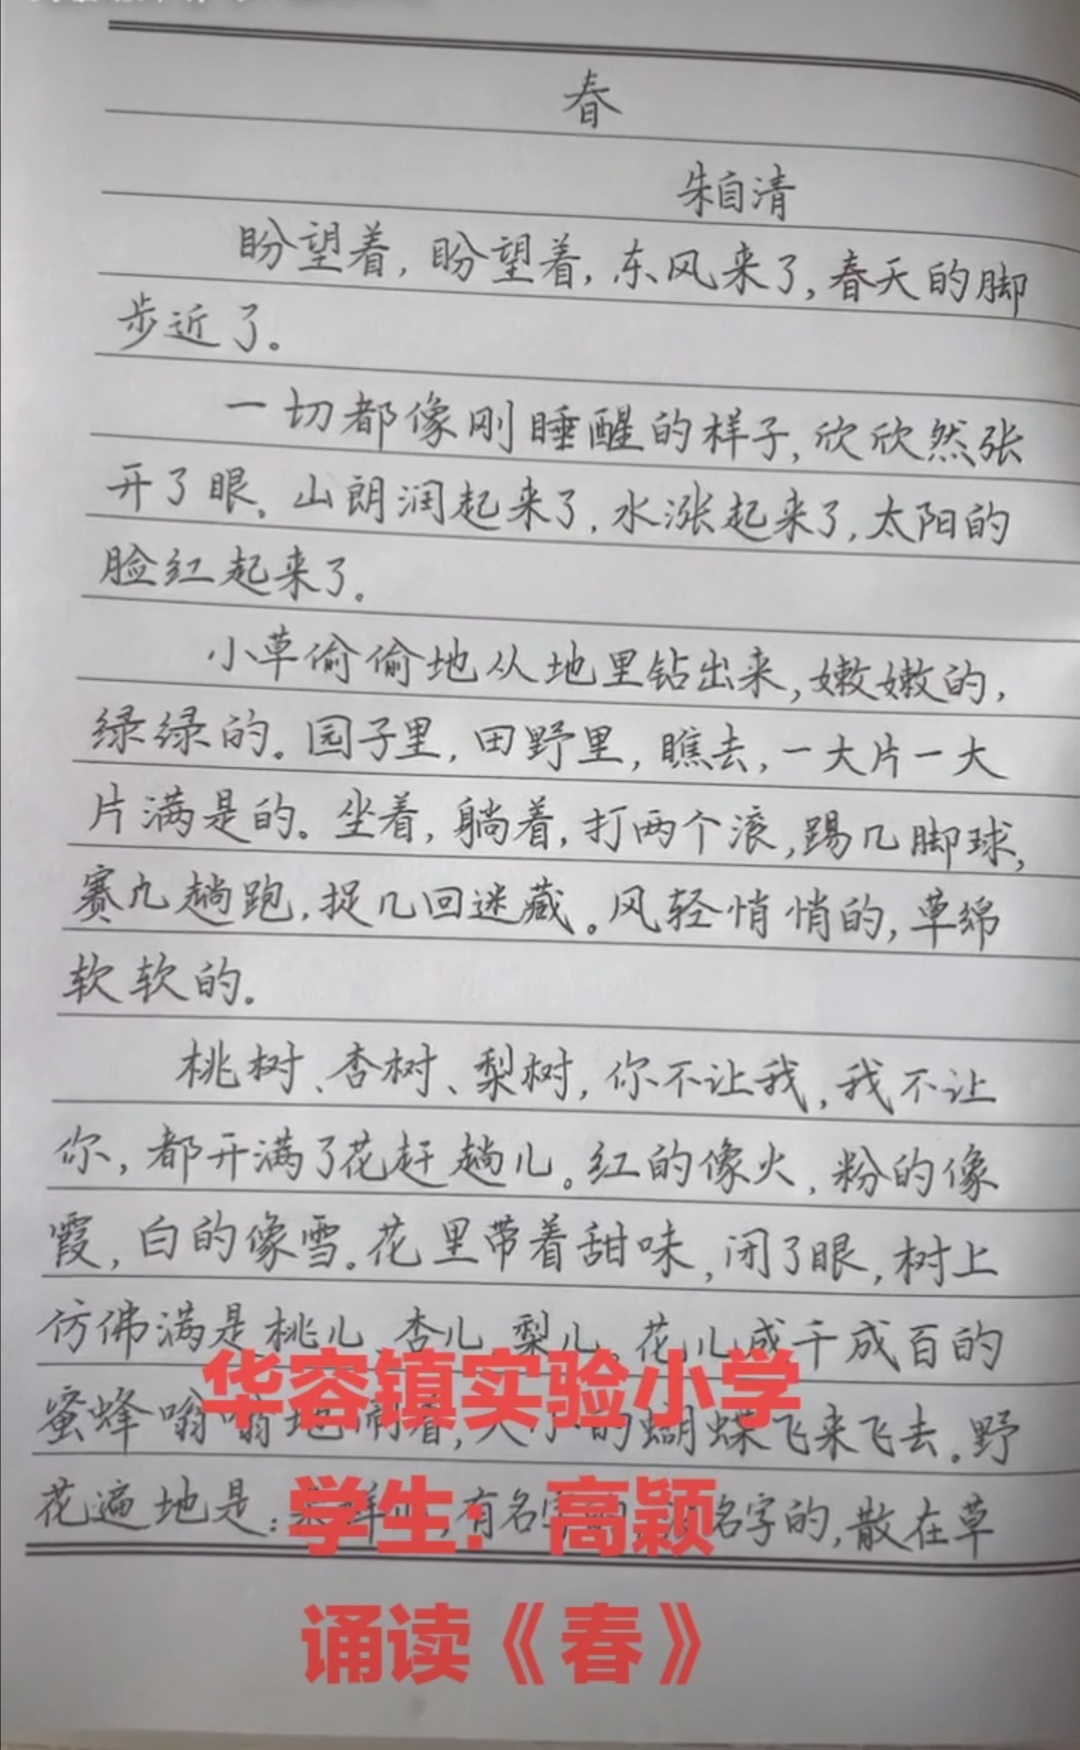 春
朱自清
盼望着,盼望着,东风来了,春天的脚
步近了。
一切都像刚睡醒的样子,欣欣然张
开了眼。山朗润起来了,水涨起来了,太阳的
脸红起来了。
小草偷偷地从地里钻出来,嫩嫩的,
绿绿的。园子里,田野里,瞧去,一大片一大
片满是的。坐着,躺着,打两个滚,踢几脚球,
赛几趟跑,捉几回迷藏。风轻悄悄的,草绵
软软的。
桃树、杏树、梨树,你不让我,我不让
你,都开满了花赶趟儿。红的像火,粉的像
霞,白的像雪。花里带着甜味,闭了眼,树上
仿佛满是桃儿、杏儿、梨儿。花儿成千成百的
华容镇实验小学
蜜蜂嗡嗡地闹着,大小的蝴蝶飞来飞去。野
花遍地是:,有名字名字的,散在草
学生:高颖
诵读《春》